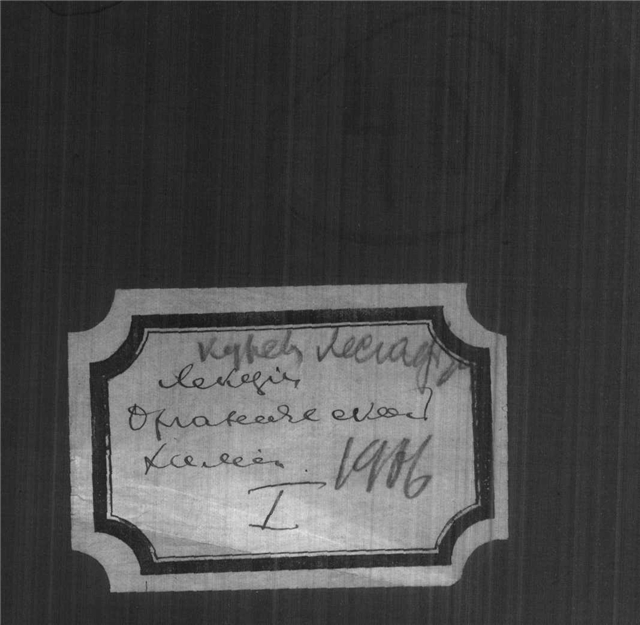 курсы Лесгафта
Лекции
Органической
химіи.
1906
I